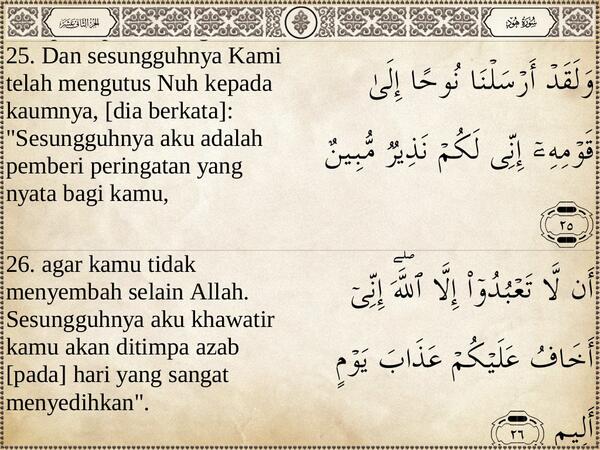 الجزء الثاني عشر
سورة هود
25. Dan sesungguhnya Kami
telah mengutus Nuh kepada
kaumnya, [dia berkata]:
"Sesungguhnya aku adalah
pemberi peringatan yang
nyata bagi kamu,
وَلَقَدْ أَرْسَلْنَا نُوحًا إِلَىٰ
قَوْمِهِۦٓ إِنِّى لَكُمْ نَذِيرٌ مُّبِينٌ
٢٥
26. agar kamu tidak
menyembah selain Allah.
Sesungguhnya aku khawatir
kamu akan ditimpa azab
[pada] hari yang sangat
menyedihkan".
أَن لَّا تَعْبُدُوٓا۟ إِلَّا ٱللَّهَ ۖ إِنِّىٓ
أَخَافُ عَلَيْكُمْ عَذَابَ يَوْمٍ
أَلِيمٍ ٢٦